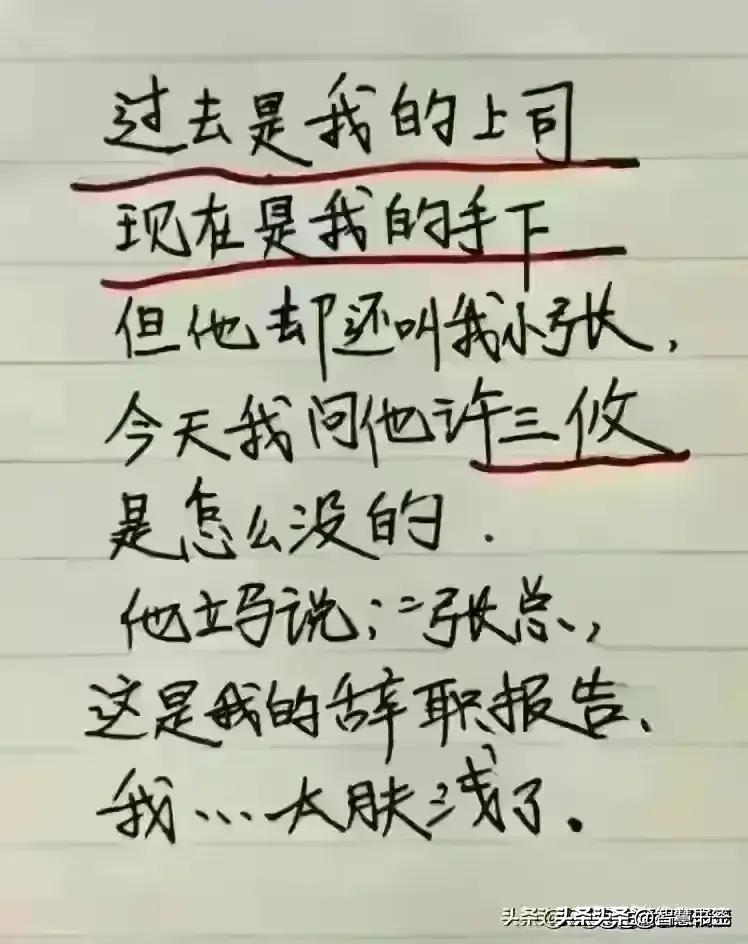 过去是我的上司
现在是我的手下
但他却还叫我小张，
今天我问他许三攸
是怎么没的．
他立马说："张总，
这是我的辞职报告、
我…太肤浅了．
头条@智慧书签